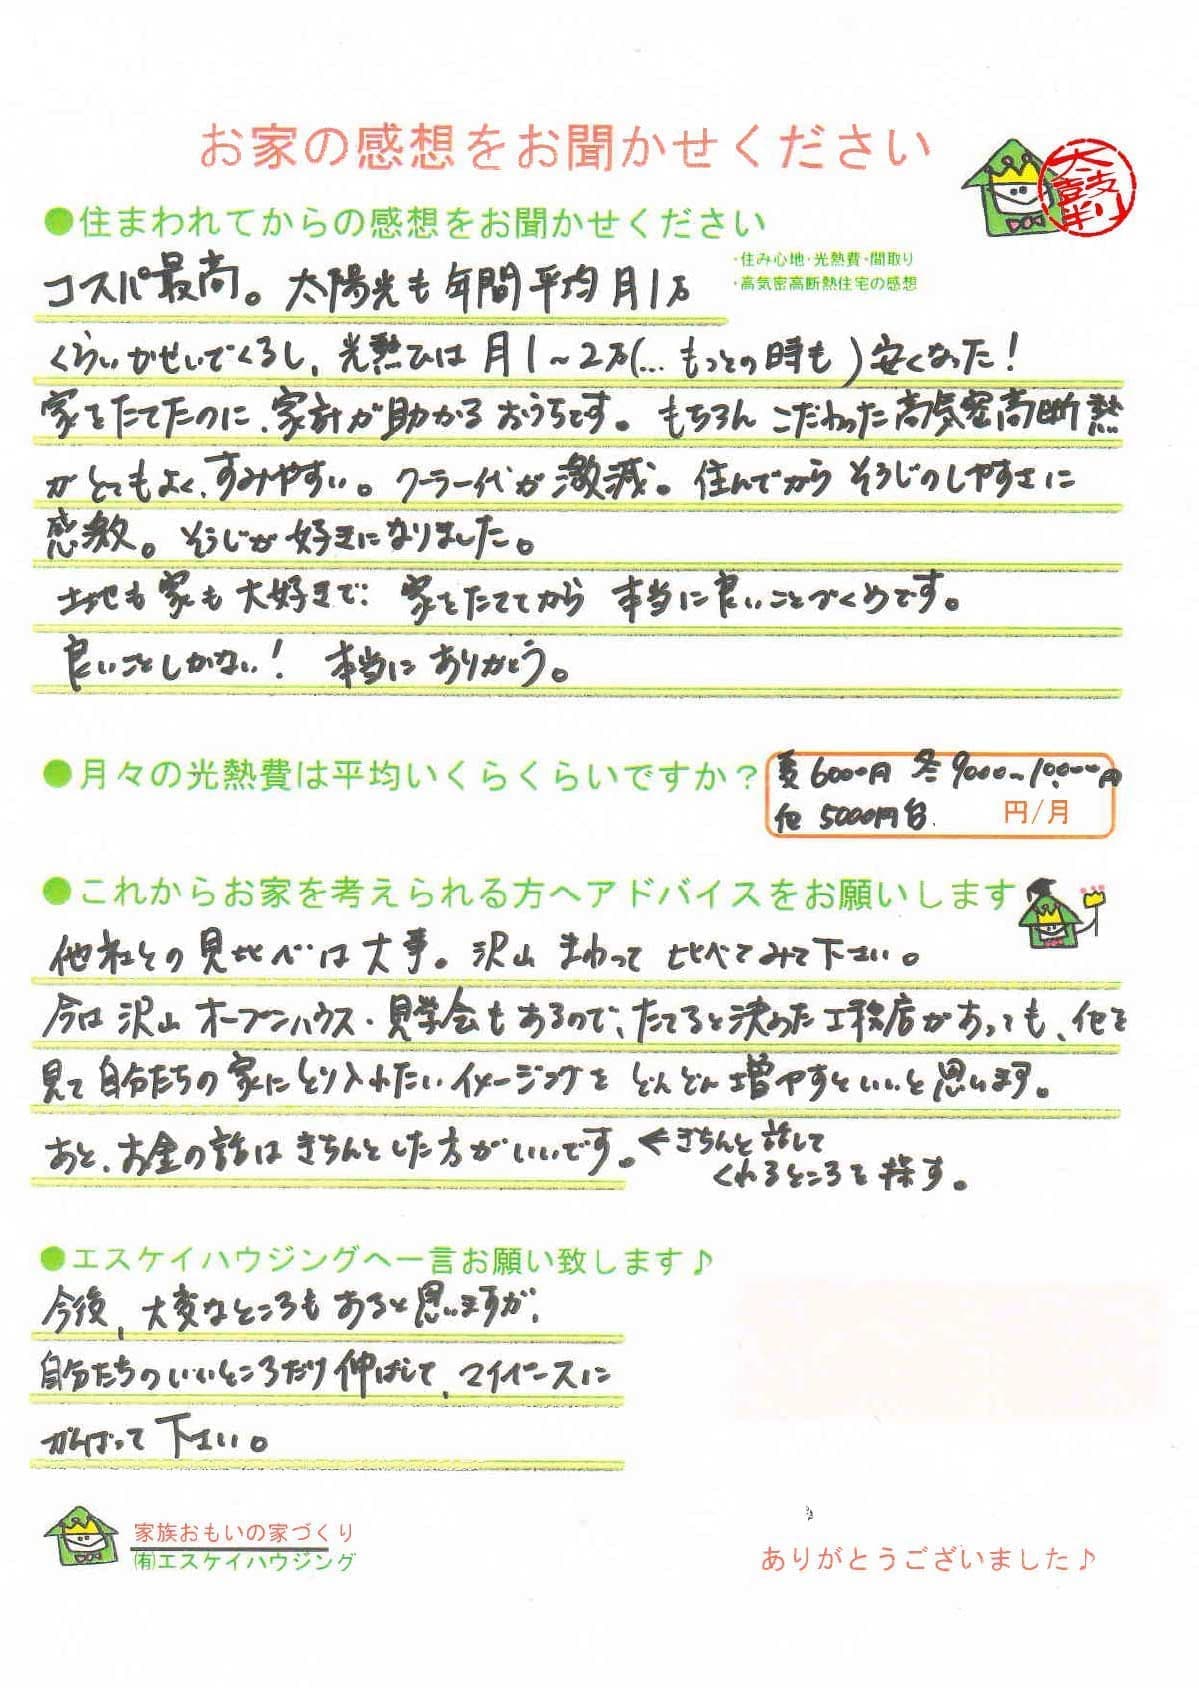 お家の感想をお聞かせください
太鼓判
●住まわれてからの感想をお聞かせください
・住み心地・光熱費・間取り
・高気密高断熱住宅の感想
コスパ最高。太陽光も年間平均月1万
くらいかせいでくるし、光熱ひは月1~2万(…もっとの時も)安くなった!
家をたてたのに、家計が助かるおうちです。もちろんこだわった高気密高断熱
がとてもよく、すみやすい。クーラー代が激減。住んでからそうじのしやすさに
感激。そうじが好きになりました。
土地も家も大好きで、家をたててから本当に良いことづくめです。
良いことしかない!本当にありがとう。
●月々の光熱費は平均いくらくらいですか?
夏6000円 冬9000~10,000円
他 5000円台.
円/月
●これからお家を考えられる方へアドバイスをお願いします
他社との見比べは大事。沢山まわって比べてみて下さい。
今は沢山オープンハウス・見学会もあるので、たてると決めた工務店があっても、他を
見て自分たちの家にとり入れたいイメージングをどんどん増やすといいと思います。
あと、お金の話はきちんとした方がいいです。←きちんと話して
くれるところを探す。
●エスケイハウジングへ一言お願い致します♪
今後、大変なところもあると思いますが、
自分たちのいいところだけ伸ばして、マイペースに
がんばって下さい。
家族おもいの家づくり
㈲エスケイハウジング
ありがとうございました♪